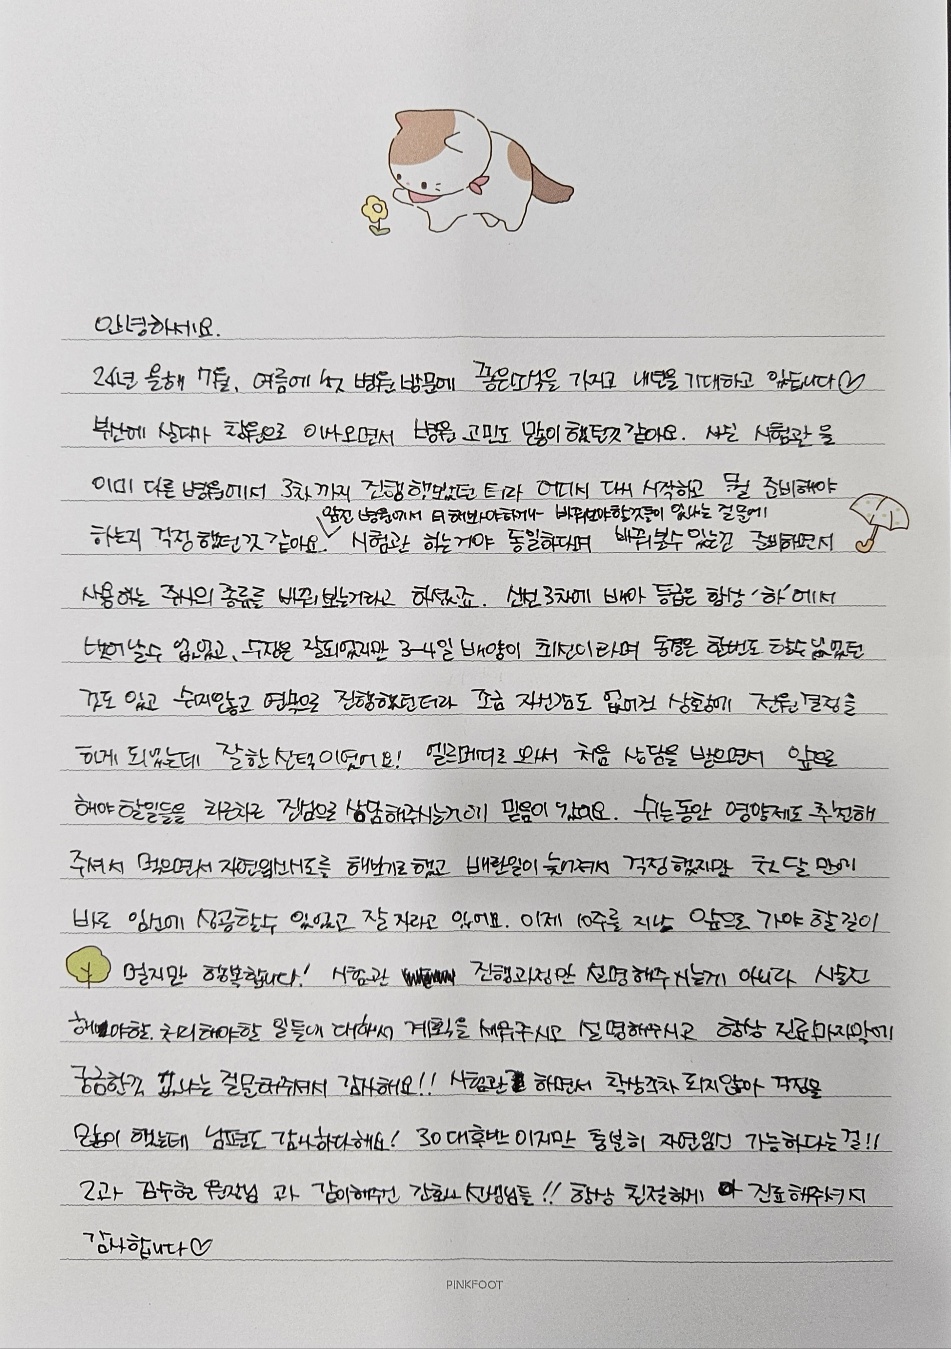 안녕하세요.
24년 올해 7월, 여름에 첫 병원 방문에 좋은소식을 가지고 내년을 기대하고 있습니다♡
부산에 살다가 창원으로 이사오면서 병원 고민도 많이 했던것 같아요. 사실 시험관을
이미 다른 병원에서 3차까지 진행해보았던 터라 어디서 다시 시작하고 뭘 준비해야
앞전 병원에서 더 해봐야하거나 바꿔보야할것들이 있냐는 질문에
하는지 걱정했던것 같아요. 시험관 하는거야 동일하다며 바꿔볼수있는건 준비하면서
사용하는 주사의 종류를 바꿔보는거라고 하셨죠. 신선3차에 배아 등급은 항상 '하'에서
벗어날수 없었고, 수정은 잘되었지만 3-4일 배양이 최선이라며 동결은 한번도 할수 없었던
것도 있고 쉬지않고 연속으로 진행했던터라 조금 자신감도 없어진 상황에 전원 결정을
하게 되었는데 잘한 선택이었어요! 엘르메디로 와서 처음 상담을 받으면서 앞으로
해야할일들을 차근차근 진심으로 상담해주시는거에 믿음이 갔어요. 쉬는동안 영양제도 추천해
주셔서 먹으면서 자연임신시도를 해보기로 했고 배란일이 늦어져서 걱정했지만 첫 달 만에
바로 임신에 성공할수 있었고 잘 자라고 있어요. 이제 10주를 지난 앞으로 가야 할 길이
멀지만 행복합니다! 시험관 진행과정만 설명해주시는게 아니라 시술전
해야할, 처리해야할 일들에 대해서 계획을 세워주시고 설명해주시고 항상 진료마지막에
궁금한것 있냐는 질문해주셔서 감사해요!! 시험관 하면서 착상조차 되지않아 걱정을
많이 했는데 남편도 감사하다해요! 30대후반이지만 충분히 자연임신 가능하다는걸!!
2과 김수현 원장님 과 같이해주신 간호사 선생님들!! 항상 친절하게 진료해주셔서
감사합니다♡
PINKFOOT